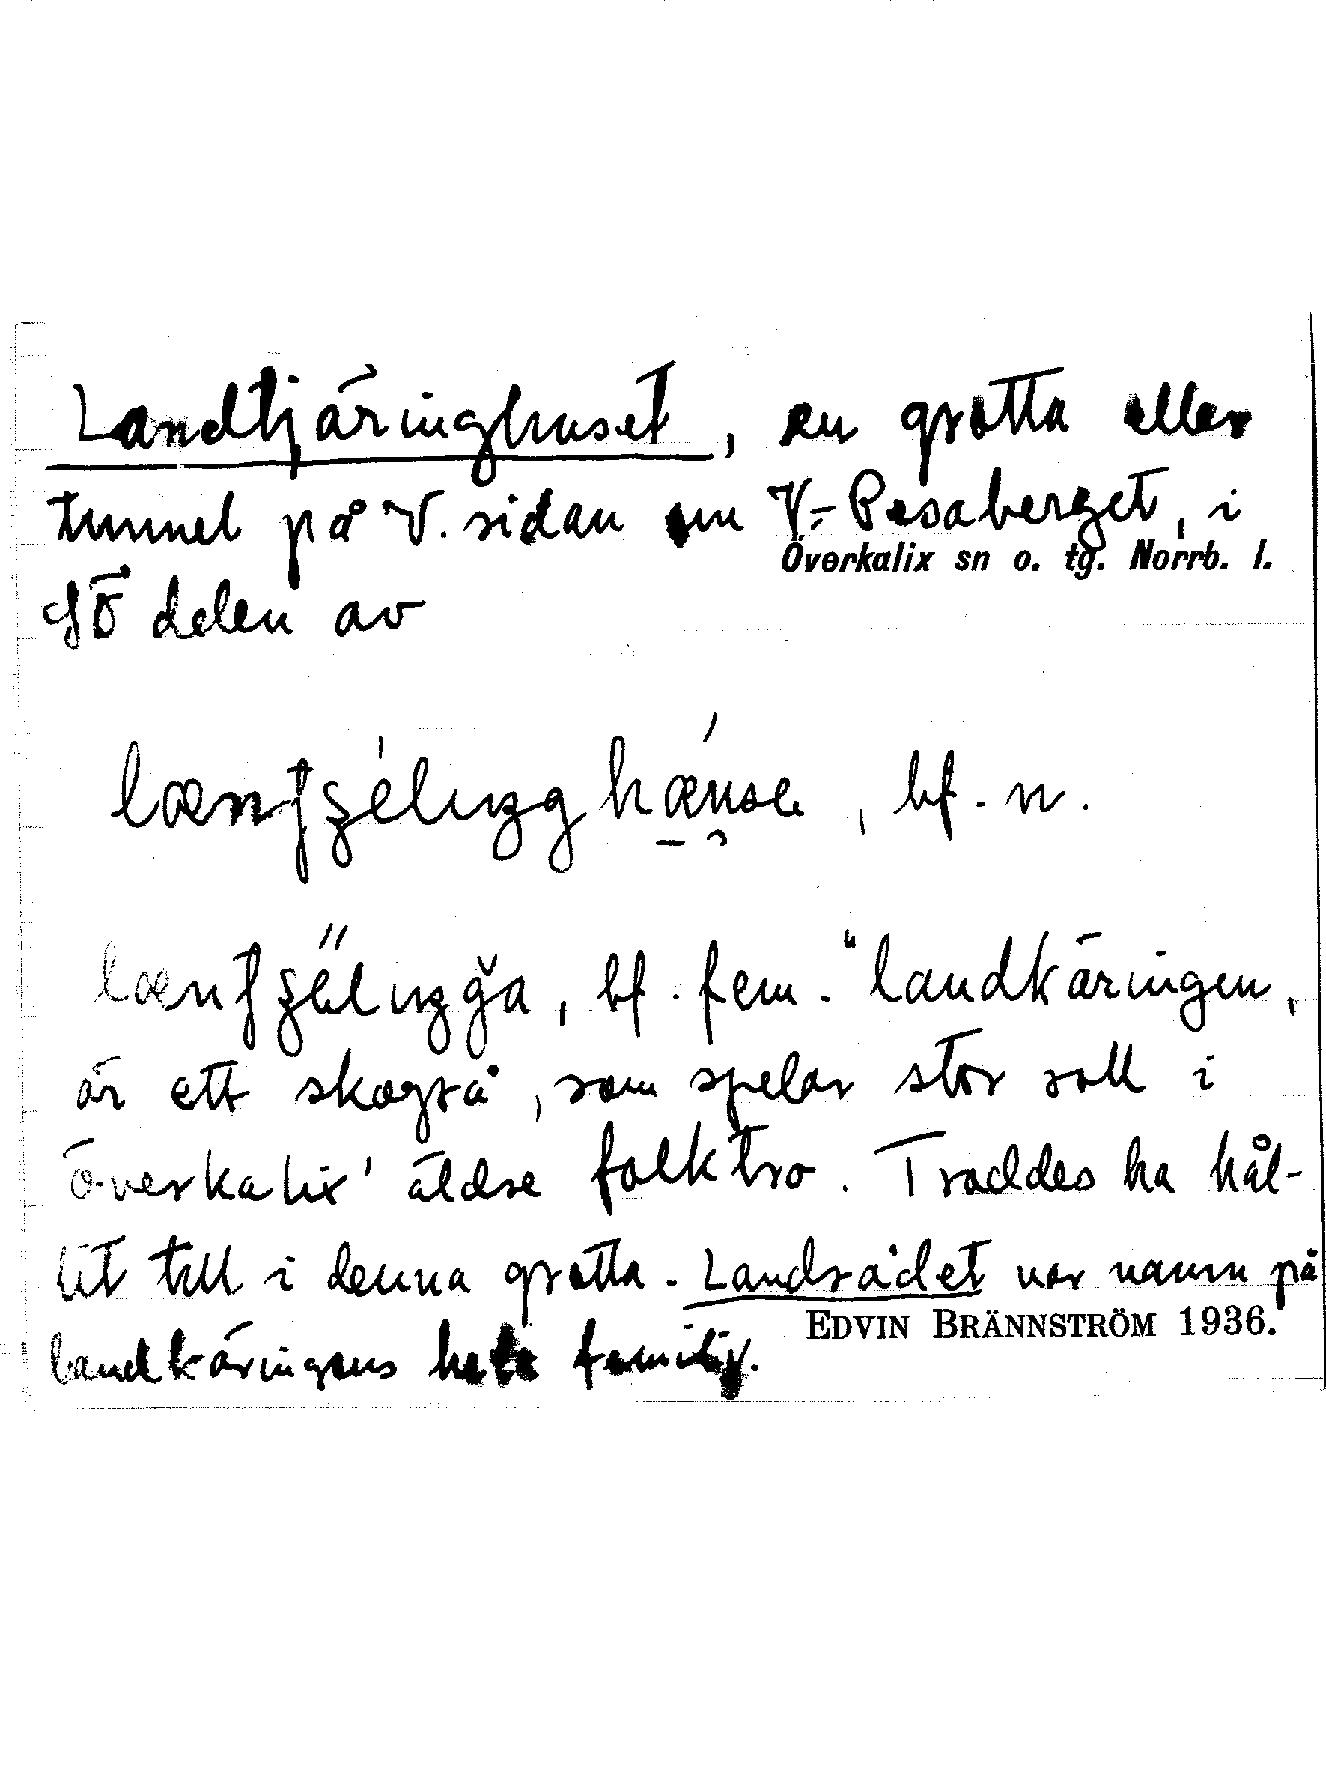 Landtjäringhuset, en grotta eller
tunnel på V. sidan om V.-Pesaberget, i
Överkalix sn o. tg. Norrb. l.
SÖ delen av
bf. n.
bf. fem. "landkäringen,
är ett skogsrå, som spelar stor roll i
överkalix' äldre folktro. Troddes ha hål-
lit till i denna grotta. Landsrådet var namn på
EDVIN BRÄNNSTRÖM 1936.
landkäringens hela familj.